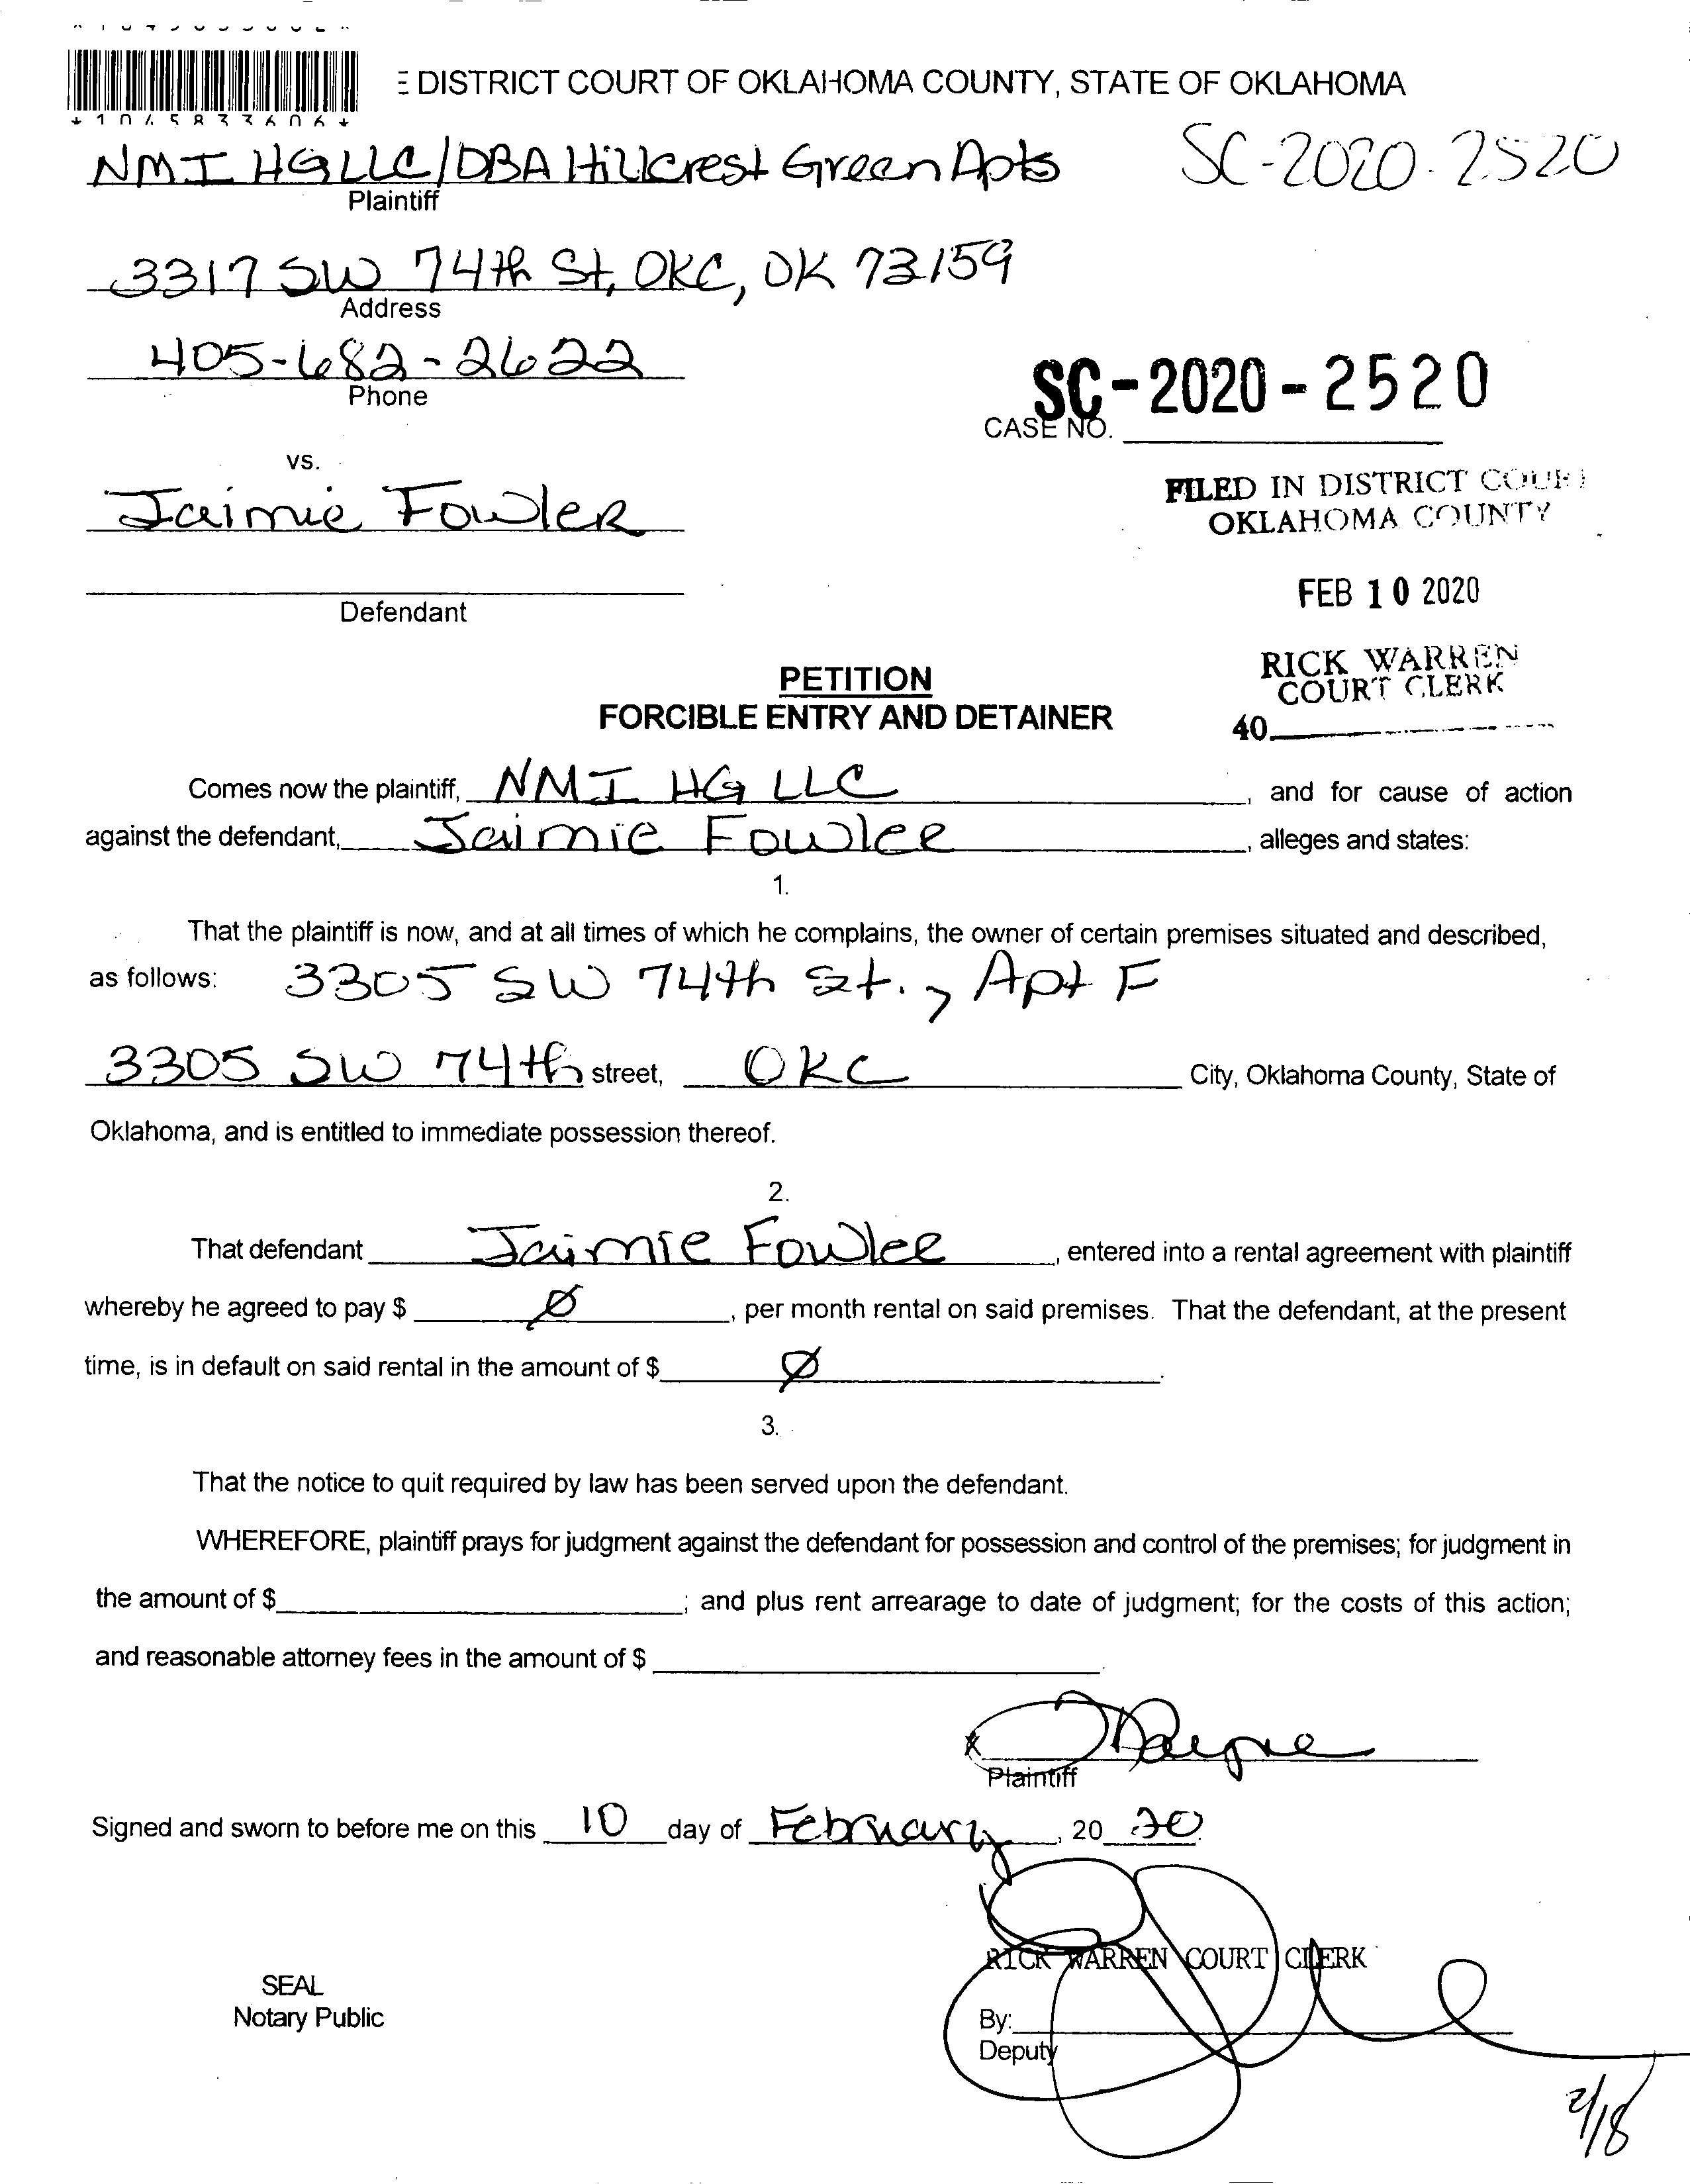 *1045833606*
DISTRICT COURT OF OKLAHOMA COUNTY, STATE OF OKLAHOMA
NMI HG LLC/DBA Hillcrest Green Apts SC-2020-2520
Plaintiff
3317 SW 74th St, OKC, OK 73159
Address
405-682-2622
Phone
SC-2020-2520
CASE NO.
vs.
Jaimie Fowler
FILED IN DISTRICT COURT
OKLAHOMA COUNTY
Defendant
FEB 10 2020
RICK WARREN
COURT CLERK
40
PETITION
FORCIBLE ENTRY AND DETAINER
Comes now the plaintiff, NMI HG LLC, and for cause of action
against the defendant, Jaimie Fowler, alleges and states:
1.
That the plaintiff is now, and at all times of which he complains, the owner of certain premises situated and described,
as follows: 3305 SW 74th St., Apt F
3305 SW 74th street, OKC City, Oklahoma County, State of
Oklahoma, and is entitled to immediate possession thereof.
2.
That defendant Jaimie Fowler, entered into a rental agreement with plaintiff
whereby he agreed to pay $ Ø, per month rental on said premises. That the defendant, at the present
time, is in default on said rental in the amount of $ Ø.
3.
That the notice to quit required by law has been served upon the defendant.
WHEREFORE, plaintiff prays for judgment against the defendant for possession and control of the premises; for judgment in
the amount of $ ; and plus rent arrearage to date of judgment; for the costs of this action;
and reasonable attorney fees in the amount of $ .
x
Plaintiff
Signed and sworn to before me on this 10 day of February, 20 20.
RICK WARREN COURT CLERK
SEAL
Notary Public
By:
Deputy
2/18